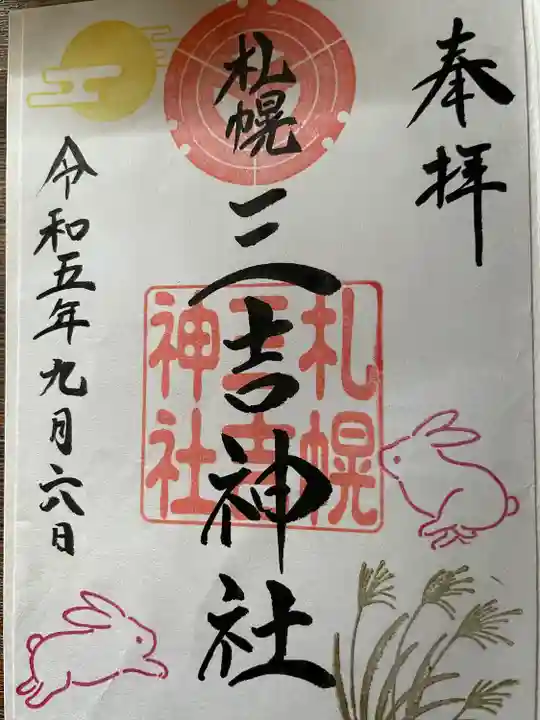 奉拝
札幌
三吉神社
札幌
三吉
神社
令和五年九月六日